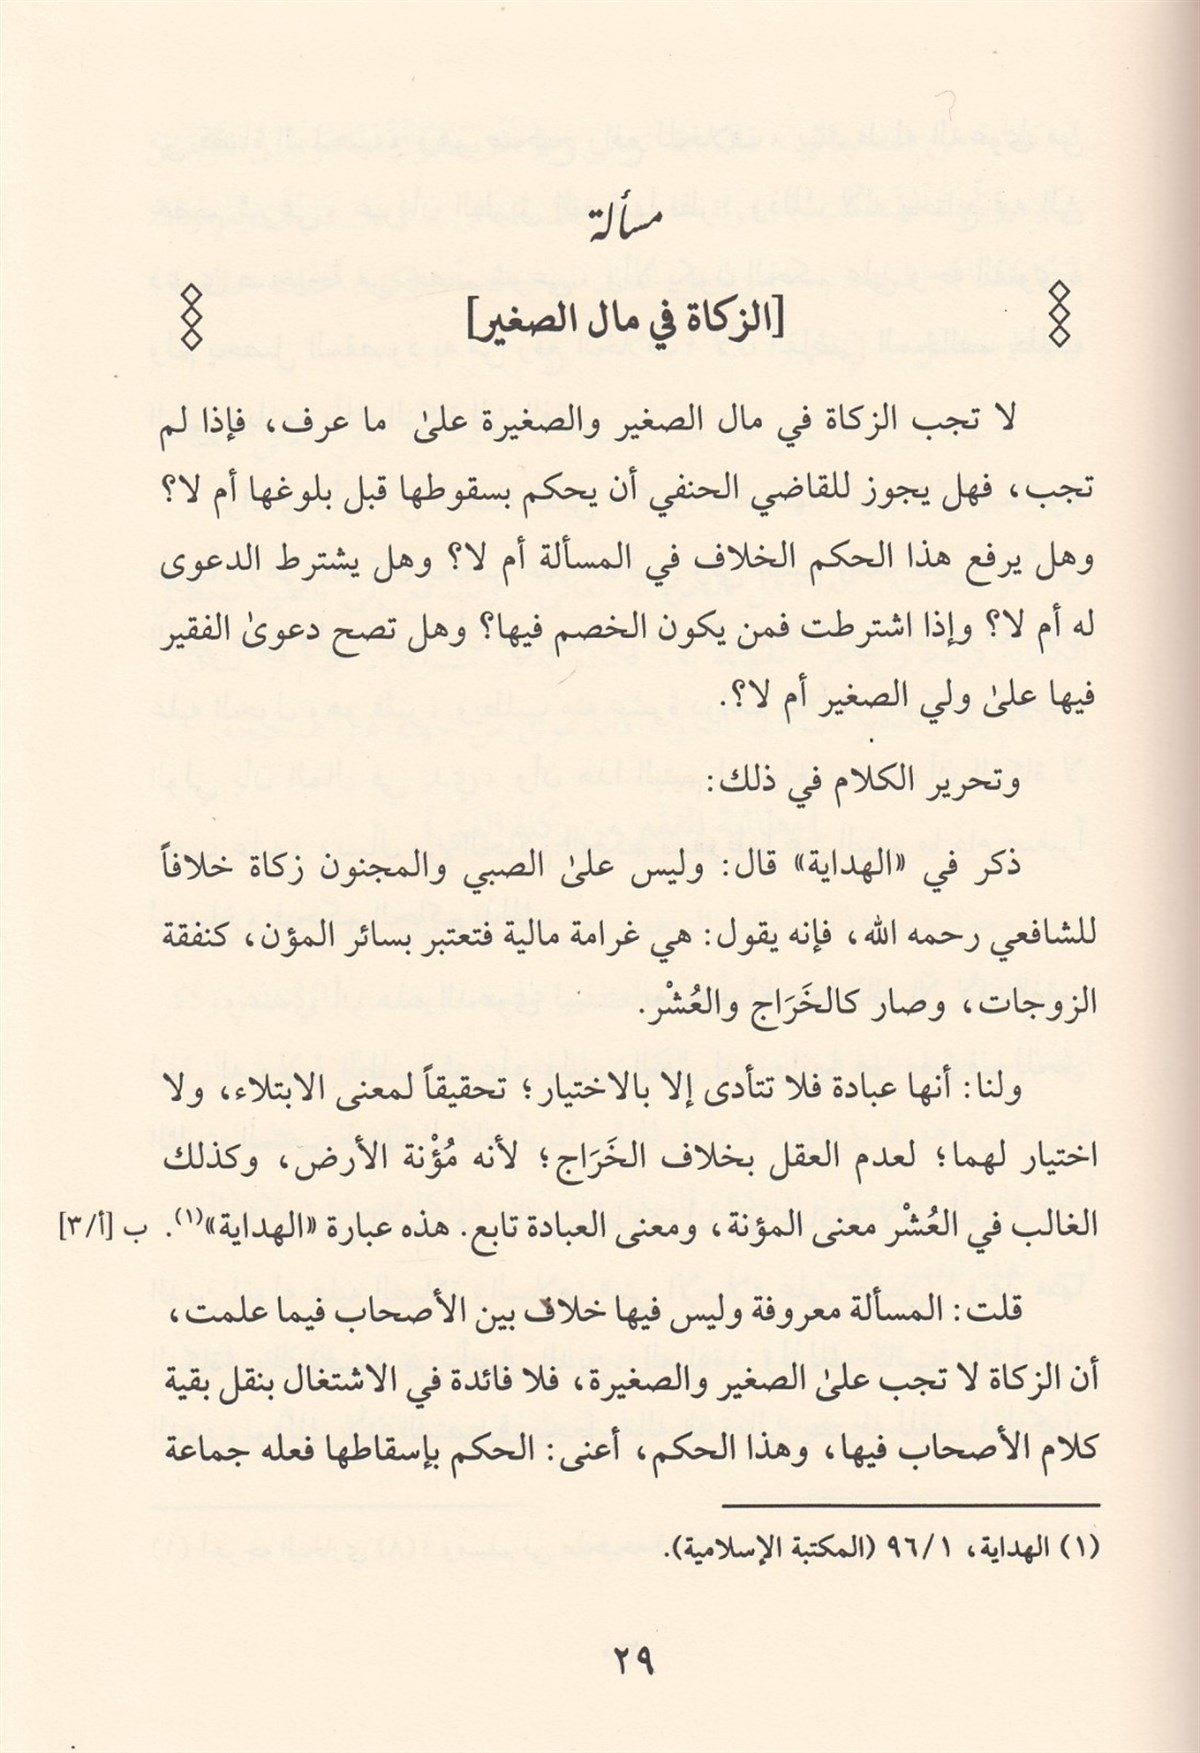 مسألة
[الزكاة في مال الصغير]
لا تجب الزكاة في مال الصغير والصغيرة علىٰ ما عرف، فإذا لم
تجب، فهل يجوز للقاضي الحنفي أن يحكم بسقوطها قبل بلوغها أم لا؟
وهل يرفع هذا الحكم الخلاف في المسألة أم لا؟ وهل يشترط الدعوى
له أم لا؟ وإذا اشترطت فمن يكون الخصم فيها؟ وهل تصح دعوىٰ الفقير
فيها علىٰ ولي الصغير أم لا؟.
وتحرير الكلام في ذلك:
ذكر في «الهداية» قال: وليس علىٰ الصبي والمجنون زكاة خلافاً
للشافعي رحمه الله، فإنه يقول: هي غرامة مالية فتعتبر بسائر المؤن، كنفقة
الزوجات، وصار كالخَرَاج والعُشْر.
ولنا: أنها عبادة فلا تتأدى إلا بالاختيار؛ تحقيقاً لمعنى الابتلاء، ولا
اختيار لهما؛ لعدم العقل بخلاف الخَرَاج؛ لأنه مُؤْنة الأرض، وكذلك
الغالب في العُشْر معنى المؤنة، ومعنى العبادة تابع. هذه عبارة «الهداية»(١). ب [أ/٣]
قلت: المسألة معروفة وليس فيها خلاف بين الأصحاب فيما علمت،
أن الزكاة لا تجب علىٰ الصغير والصغيرة، فلا فائدة في الاشتغال بنقل بقية
كلام الأصحاب فيها، وهذا الحكم، أعنى: الحكم بإسقاطها فعله جماعة
(١) الهداية، ٩٦/١ (المكتبة الإسلامية).
٢٩